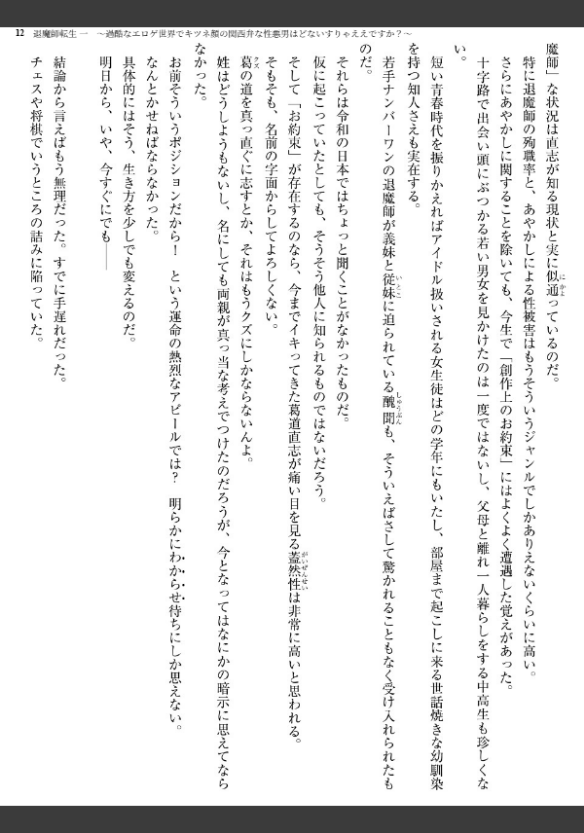 12 退魔師転生 一 ～過酷なエロゲ世界でキツネ顔の関西弁な性悪男はどないすりゃええですか？～
魔師」な状況は直志が知る現状と実に似通っているのだ。
特に退魔師の殉職率と、あやかしによる性被害はもうそういうジャンルでしかありえないくらいに高い。
さらにあやかしに関することを除いても、今生で「創作上のお約束」にはよくよく遭遇した覚えがあった。
十字路で出会い頭にぶつかる若い男女を見かけたのは一度ではないし、父母と離れ一人暮らしをする中高生も珍しくな
い。
短い青春時代を振りかえればアイドル扱いされる女生徒はどの学年にもいたし、部屋まで起こしに来る世話焼きな幼馴染
を持つ知人さえも実在する。
若手ナンバーワンの退魔師が義妹と従妹に迫られている醜聞も、そういえばさして驚かれることもなく受け入れられたも
のだ。
それらは令和の日本ではちょっと聞くことがなかったものだ。
仮に起こっていたとしても、そうそう他人に知られるものではないだろう。
そして「お約束」が存在するのなら、今までイキってきた葛道直志が痛い目を見る蓋然性は非常に高いと思われる。
そもそも、名前の字面からしてよろしくない。
葛の道を真っ直ぐに志すとか、それはもうクズにしかならないんよ。
姓はどうしようもないし、名にしても両親が真っ当な考えでつけたのだろうが、今となってはなにかの暗示に思えてなら
なかった。
お前そういうポジションだから！　という運命の熱烈なアピールでは？　明らかにわからせ待ちにしか思えない。
なんとかせねばならなかった。
具体的にはそう、生き方を少しでも変えるのだ。
明日から、いや、今すぐにでも――
結論から言えばもう無理だった。すでに手遅れだった。
チェスや将棋でいうところの詰みに陥っていた。